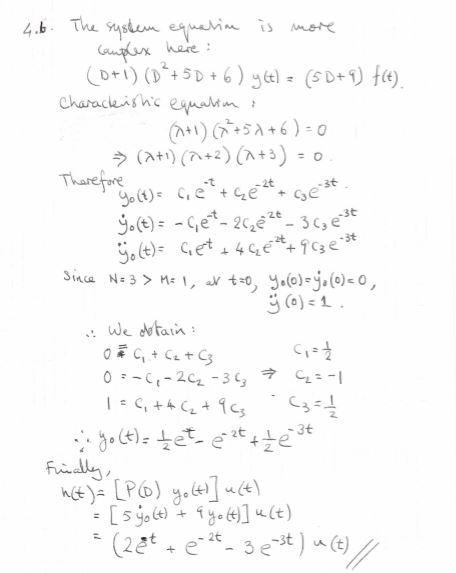 4.6. The system equation is more
complex here :
(D+1) (D²+5D+6) y(t) = (5D+9) f(t).
Characteristic equation :
(λ+1) (λ²+5λ+6) = 0
⇒ (λ+1) (λ+2) (λ+3) = 0.
Therefore
y₀(t) = C₁e^-t + C₂e^-2t + C₃e^-3t.
ẏ₀(t) = -C₁e^-t - 2C₂e^-2t - 3C₃e^-3t
ÿ₀(t) = C₁e^-t + 4C₂e^-2t + 9C₃e^-3t
Since N=3 > M=1, at t=0, y₀(0) = ẏ₀(0) = 0,
ÿ(0) = 1.
∴ We obtain :
0 = C₁ + C₂ + C₃ C₁ = 1/2
0 = -C₁ - 2C₂ - 3C₃ ⇒ C₂ = -1
1 = C₁ + 4C₂ + 9C₃ C₃ = 1/2
∴ y₀(t) = 1/2 e^-t - e^-2t + 1/2 e^-3t
Finally,
h(t) = [P(D) y₀(t)] u(t)
= [5ẏ₀(t) + 9y₀(t)] u(t)
= (2e^-t + e^-2t - 3e^-3t) u(t) //